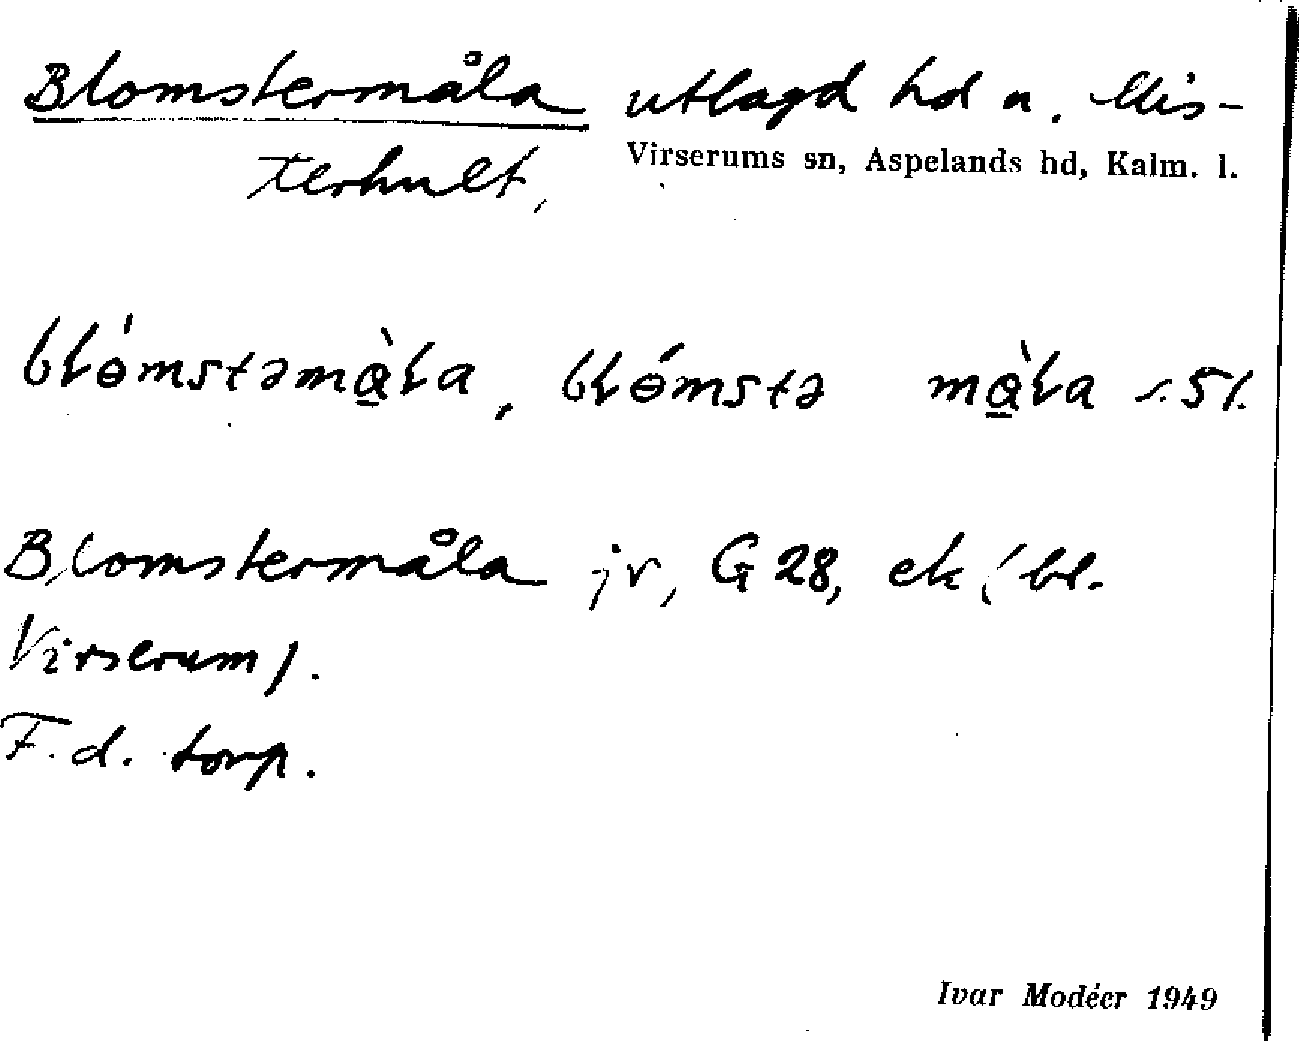 Blomstermåla utlagd hd a. Mis-
terhult,
Virserums sn, Aspelands hd, Kalm. l.
blɵ́mstəmɑ̀ɽa, blɵ́mstə mɑ̀ɽa s. 5 l.
Blomstermåla jr, G 28, ek (bl.
Virserum).
F.d. torp.
Ivar Modéer 1949